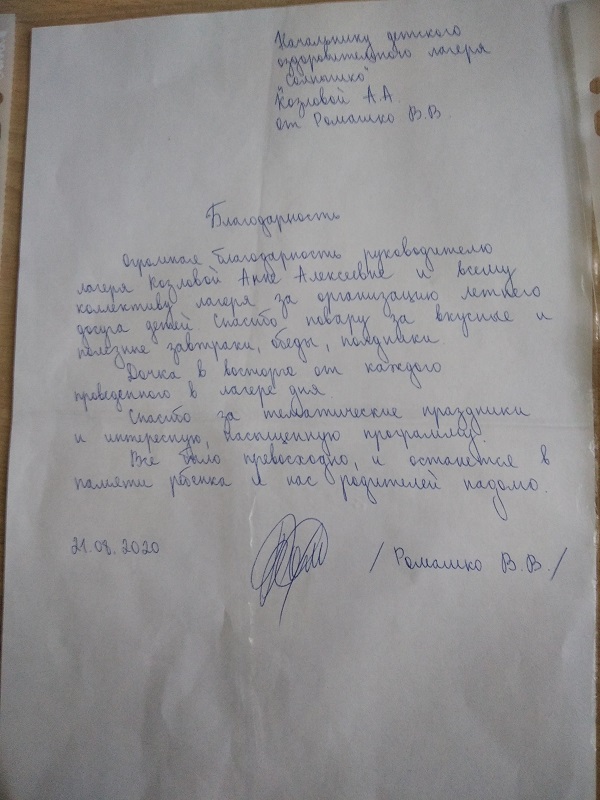 Начальнику детского
оздоровительного лагеря
"Солнышко"
Козловой А.А.
от Ромашко В.В.
Благодарность
Огромная благодарность руководителю
лагеря Козловой Анне Алексеевне и всему
коллективу лагеря за организацию летнего
досуга детей. Спасибо повару за вкусные и
полезные завтраки, обеды, полдники.
Дочка в восторге от каждого
проведенного в лагере дня.
Спасибо за тематические праздники
и интересную, насыщенную программу.
Все было превосходно, и останется в
памяти ребенка и нас родителей надолго.
21.08.2020
/ Ромашко В.В. /